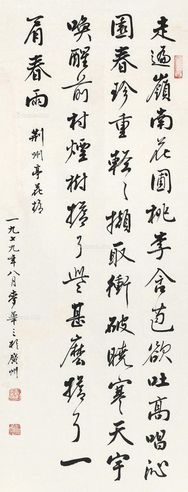 走遍嶺南花圃桃李含苞欲吐高唱沁
園春珍重輕々擷取衝破曉寒天宇
喚醒前村煙樹擔了些甚麼擔了一
肩春雨
荆州亭
一九七九年八月李華之於廣州